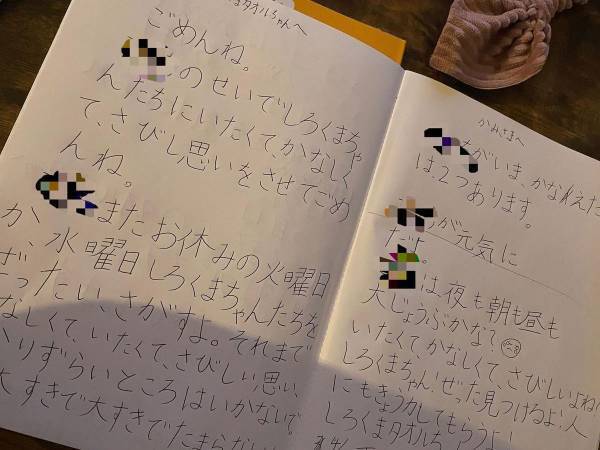 まタオルちゃんへ
ごめんね。
のせいでしろくまちゃ
んたちにいたくて、かなしく
て、さびし思いをさせてごめ
んね。
またお休みの火曜日
か、水曜日しろくまちゃんたちを
ぜったい、さがすよ。それまで
なしくて、いたくて、さびしい思い、
りずらいところはいかないで。
大すきで大すきでたまらない
かみさまへ
がいま、かなえた
は、2つあります。
が元気に
だよ。
は夜も朝も昼も
大じょうぶかな?
いたくて、かなしくて、さびしいよね
しろくまちゃん!ぜった見つけるよ!人
にもきょう力してもらうよ!
しろくまタオルち